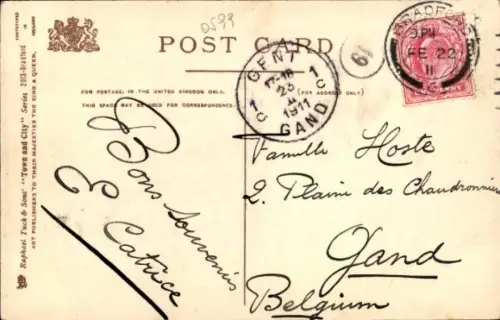 0599
POST CARD
FOR POSTAGE, IN THE UNITED KINGDOM ONLY,
THIS SPACE MAY BE USED FOR CORRESPONDENCE.
(FOR ADDRESS ONLY)
Raphael Tuck & Sons' "Town and City" Series, 2113-Bradford
ART PUBLISHERS TO THEIR MAJESTIES THE KING & QUEEN.
GENT 1
18
23
1911
1C GAND
BRADFORD
FE 22
11
Bons souvenirs
E Catrice
Famille Hoste
2, Plaine des Chaudronniers
Gand
Belgium